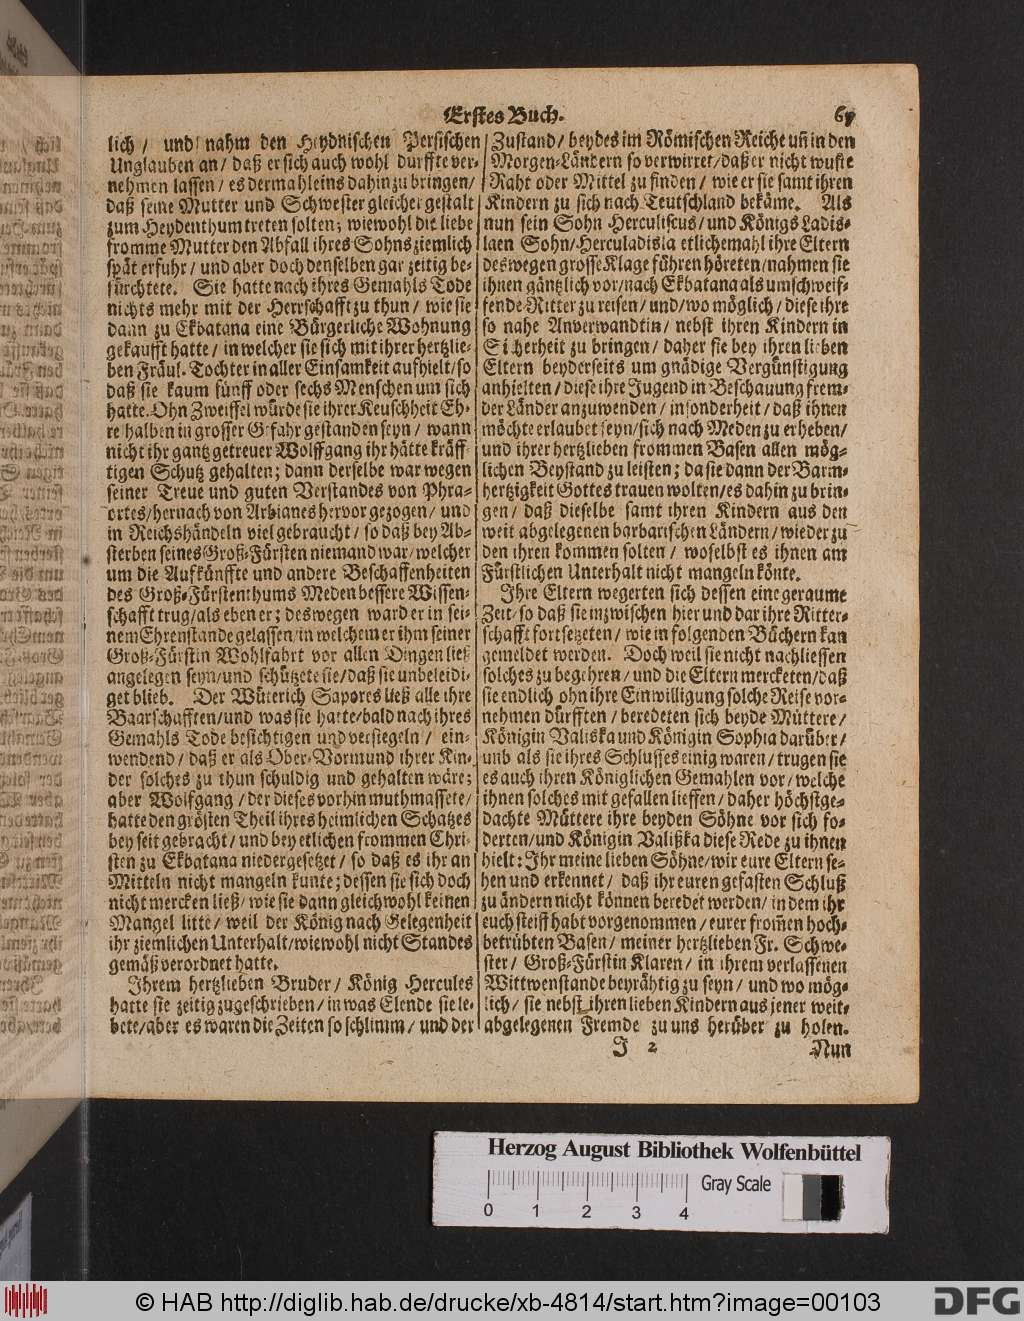 Erstes Buch.
lich / und nahm den Heydnischen Persischen
Unglauben an / daß er sich auch wohl durffte ver-
nehmen lassen / es dermahleins dahin zu bringen /
daß seine Mutter und Schwester gleicher gestalt
zum Heydenthum treten solten; wiewohl die liebe
fromme Mutter den Abfall ihres Sohns ziemlich
spät erfuhr / und aber doch denselben gar zeitig be-
fürchtete. Sie hatte nach ihres Gemahls Tode
nichts mehr mit der Herrschafft zu thun / wie sie
dann zu Ekbatana eine Bürgerliche Wohnung
gekaufft hatte / in welcher sie sich mit ihrer hertzlie-
ben Fräul. Tochter in aller Einsamkeit aufhielt / so
daß sie kaum fünff oder sechs Menschen um sich
hatte. Ohn Zweiffel würde sie ihrer Keuschheit Eh-
re halben in grosser Gefahr gestanden seyn / wann
nicht ihr gantz getreuer Wolffgang ihr hätte kräff-
tigen Schutz gehalten; dann derselbe war wegen
seiner Treue und guten Verstandes von Phra-
ortes / hernach von Arbianes hervor gezogen / und
in Reichshändeln viel gebraucht / so daß bey Ab-
sterben seines Groß-Fürsten niemand war / welcher
um die Aufkünffte und andere Beschaffenheiten
des Groß-Fürstenthums Meden bessere Wissen-
schafft trug / als eben er; deswegen ward er in sei-
nem Ehrenstande gelassen / in welchem er ihm seiner
Groß-Fürstin Wohlfahrt vor allen Dingen ließ
angelegen seyn / und schützete sie / daß sie unbeleidi-
get blieb. Der Wüterich Sapores ließ alle ihre
Baarschafften / und was sie hatte / bald nach ihres
Gemahls Tode besichtigen und versiegeln / ein-
wendend / daß er als Ober-Vormund ihrer Kin-
der solches zu thun schuldig und gehalten wäre;
aber Wolfgang / der dieses vorhin muthmassete /
hatte den grösten Theil ihres heimlichen Schatzes
bey seit gebracht / und bey etlichen frommen Chri-
sten zu Ekbatana niedergesetzet / so daß es ihr an
Mitteln nicht mangeln kunte; dessen sie sich doch
nicht mercken ließ / wie sie dann gleichwohl keinen
Mangel litte / weil der König nach Gelegenheit
ihr ziemlichen Unterhalt / wiewohl nicht Standes
gemäß verordnet hatte.
Ihrem hertzlieben Bruder / König Hercules
hatte sie zeitig zugeschrieben / in was Elende sie le-
bete / aber es waren die Zeiten so schlimm / und der
Zustand / beydes im Römischen Reiche uñ in den
Morgen-Ländern so verwirret / daß er nicht wuste
Raht oder Mittel zu finden / wie er sie samt ihren
Kindern zu sich nach Teutschland bekäme. Als
nun sein Sohn Herculiscus / und Königs Ladis-
laen Sohn / Herculadisla etlichemahl ihre Eltern
deswegen grosse Klage führen höreten / nahmen sie
ihnen gäntzlich vor / nach Ekbatana als umschweif-
fende Ritter zu reisen / und / wo möglich / diese ihre
so nahe Anverwandtin / nebst ihren Kindern in
Sicherheit zu bringen / daher sie bey ihren lieben
Eltern beyderseits um gnädige Vergünstigung
anhielten / diese ihre Jugend in Beschauung frem-
der Länder anzuwenden / insonderheit / daß ihnen
möchte erlaubet seyn / sich nach Meden zu erheben /
und ihrer hertzlieben frommen Basen allen mög-
lichen Beystand zu leisten; da sie dann der Barm-
hertzigkeit Gottes trauen wolten / es dahin zu brin-
gen / daß dieselbe samt ihren Kindern aus den
weit abgelegenen barbarischen Ländern / wieder zu
den ihren kommen solten / woselbst es ihnen am
Fürstlichen Unterhalt nicht mangeln könte.
Ihre Eltern wegerten sich dessen eine geraume
Zeit / so daß sie inzwischen hier und dar ihre Ritter-
schafft fortsetzeten / wie in folgenden Büchern kan
gemeldet werden. Doch weil sie nicht nachliessen
solches zu begehren / und die Eltern mercketen / daß
sie endlich ohn ihre Einwilligung solche Reise vor-
nehmen dürfften / beredeten sich beyde Müttere /
Königin Valiska und Königin Sophia darüber /
und als sie ihres Schlusses einig waren / trugen sie
es auch ihren Königlichen Gemahlen vor / welche
ihnen solches mit gefallen lieffen / daher höchstge-
dachte Müttere ihre beyden Söhne vor sich fo-
derten / und Königin Valißka diese Rede zu ihnen
hielt: Ihr meine lieben Söhne / wir eure Eltern se-
hen und erkennet / daß ihr euren gefasten Schluß
zu ändern nicht können beredet werden / in dem ihr
euch steiff habt vorgenommen / eurer from̃en hoch-
betrübten Basen / meiner hertzlieben Fr. Schwe-
ster / Groß-Fürstin Klaren / in ihrem verlassenen
Wittwenstande beyrähtig zu seyn / und wo mög-
lich / sie nebst ihren lieben Kindern aus jener weit-
abgelegenen Fremde zu uns herüber zu holen.
J 2
Nun
Herzog August Bibliothek Wolfenbüttel
Gray Scale
0 1 2 3 4
© HAB http://diglib.hab.de/drucke/xb-4814/start.htm?image=00103
DFG